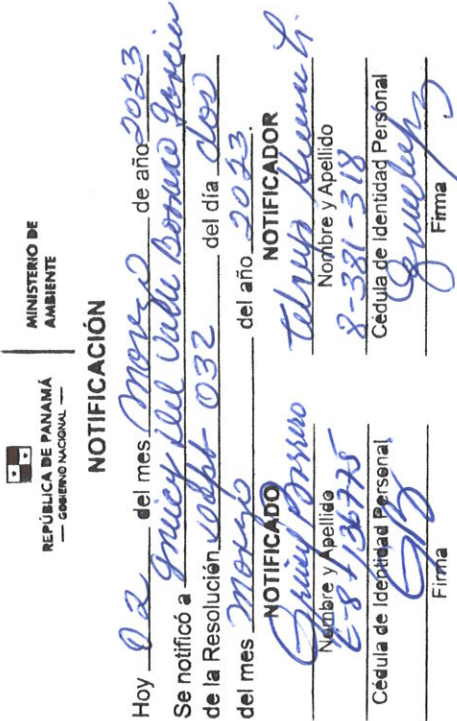 REPÚBLICA DE PANAMÁ
— GOBIERNO NACIONAL —
MINISTERIO DE
AMBIENTE
NOTIFICACIÓN
Hoy 02 del mes Marzo de año 2023
Se notificó a Gricey del Valle Borrero García
de la Resolución 032 del día dos
del mes Marzo del año 2023.
NOTIFICADO
Gricey Borrero
Nombre y Apellido
E-8-136775
Cédula de Identidad Personal
Firma
NOTIFICADOR
Nombre y Apellido
8-381-318
Cédula de Identidad Personal
Firma